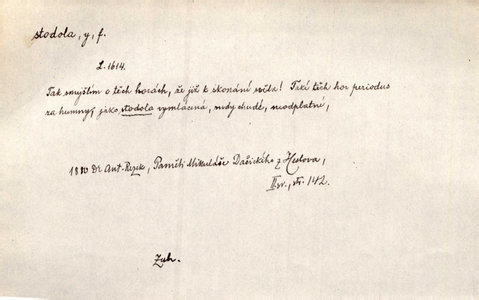 stodola, y, f.
L. 1614.
Tak smýšlím o těch horách, že již k skonání světa! Také těch hor periodus
za humny, jako stodola vymlácená, rudy chudé, neodplatné,
1880 Dr Ant. Rezek, Paměti Mikuláše Dačického z Heslova,
II sv., str. 142.
Zub.